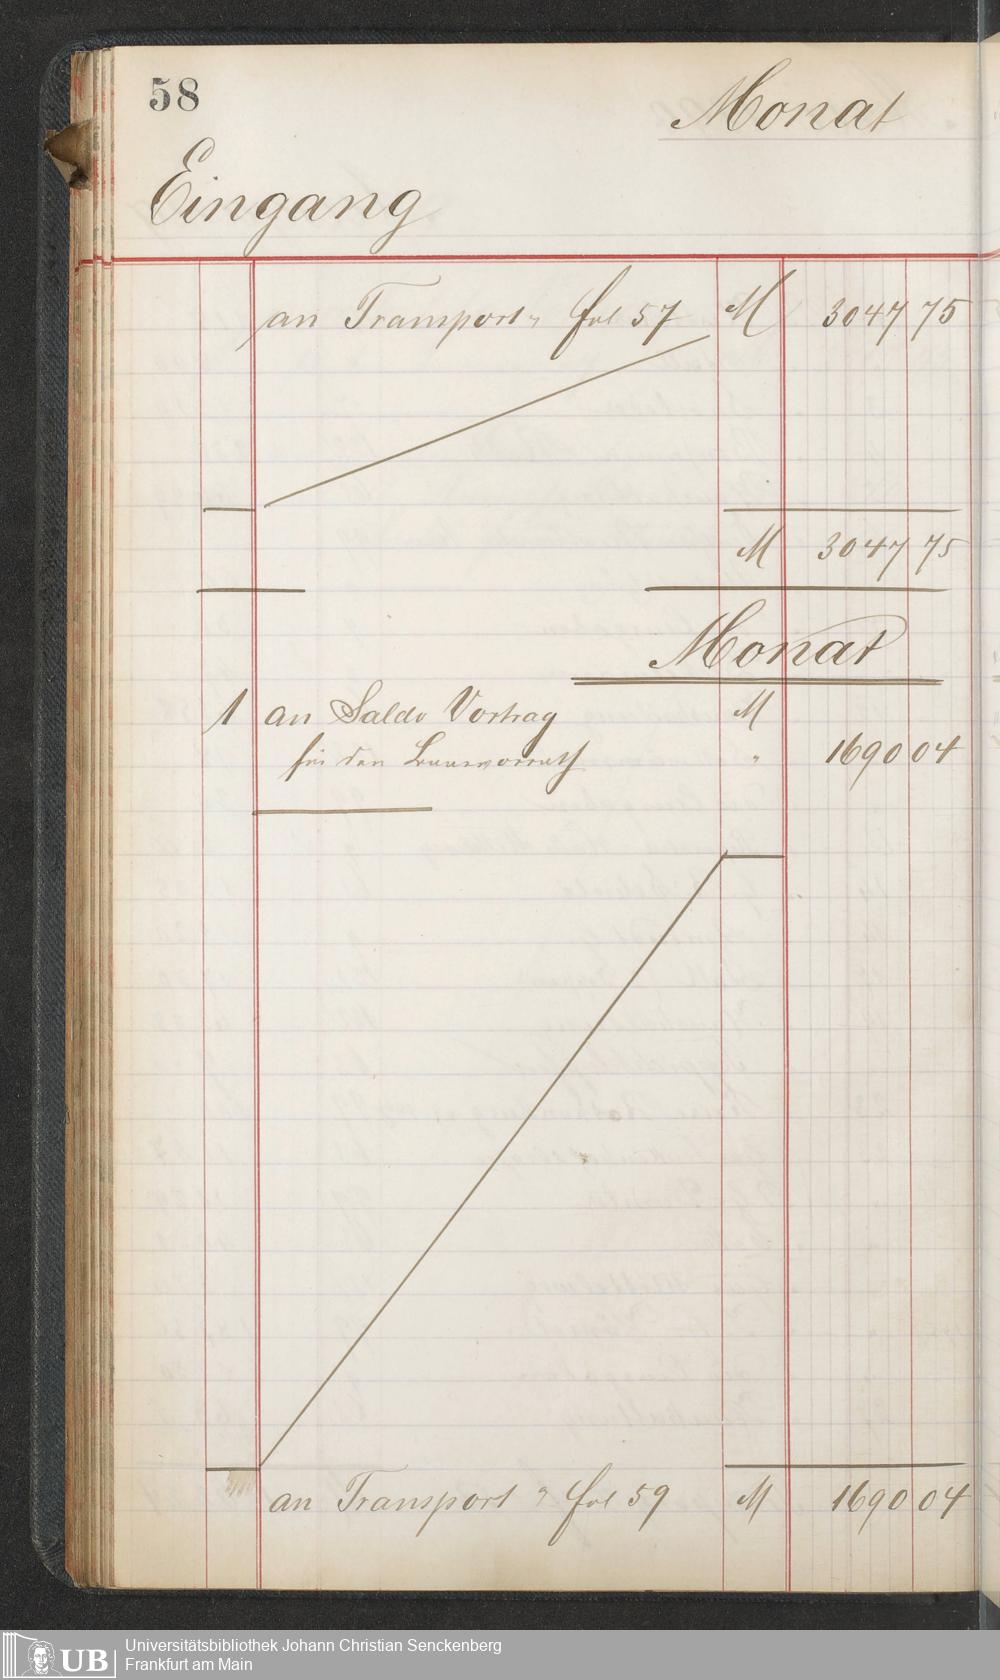 58
Monat
Eingang
an Transport " fol 57 M 3047 75
M 3047 75
Monat
1 an Saldo Vortrag M
für den " 1690 04
an Transport " fol 59 M 1690 04
UB Universitätsbibliothek Johann Christian Senckenberg
Frankfurt am Main